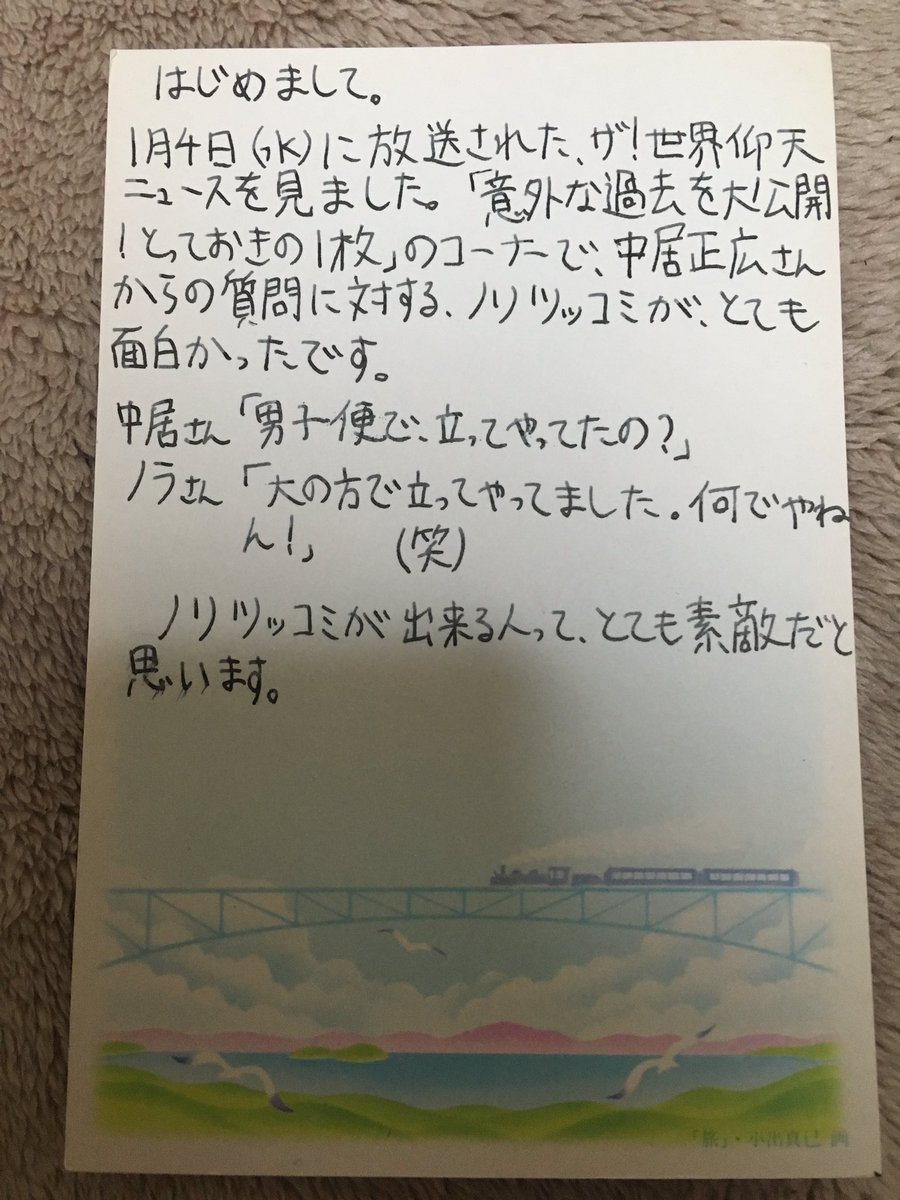 はじめまして。
1月4日(水)に放送された、ザ!世界仰天
ニュースを見ました。「意外な過去を大公開
!とっておきの1枚」のコーナーで、中居正広さん
からの質問に対する、ノリツッコミが、とても
面白かったです。
中居さん「男子便で、立ってやってたの?」
ノラさん「大の方で立ってやってました。何でやね
ん!」 (笑)
ノリツッコミが出来る人って、とても素敵だと
思います。
「旅」・小出真己 画